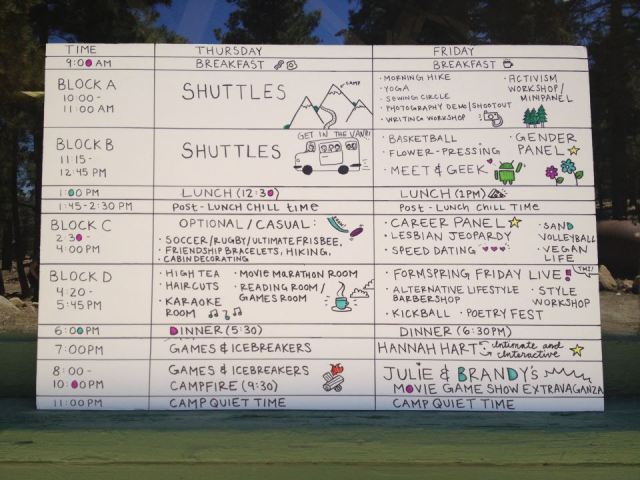 TIME THURSDAY FRIDAY
9:00 AM BREAKFAST BREAKFAST
BLOCK A
10:00 -
11:00 AM
SHUTTLES
CAMP
· MORNING HIKE
· YOGA
· SEWING CIRCLE
· PHOTOGRAPHY DEMO/SHOOTOUT
· WRITING WORKSHOP
· ACTIVISM
WORKSHOP/
MINIPANEL
BLOCK B
11:15 -
12:45 PM
SHUTTLES
GET IN THE VAN!!
· BASKETBALL
· FLOWER-PRESSING
· MEET & GEEK
· GENDER
PANEL
1:00 PM LUNCH (12:30) LUNCH (1PM)
1:45-2:30 PM POST-LUNCH CHILL TIME POST-LUNCH CHILL TIME
BLOCK C
2:30 -
4:00 PM
OPTIONAL/CASUAL:
· SOCCER/RUGBY/ULTIMATE FRISBEE,
· FRIENDSHIP BRACELETS, HIKING,
· CABIN DECORATING
· CAREER PANEL
· LESBIAN JEOPARDY
· SPEED DATING
· SAND
VOLLEYBALL
· VEGAN
LIFE
BLOCK D
4:20 -
5:45 PM
· HIGH TEA
· HAIRCUTS
· KARAOKE
ROOM
· MOVIE MARATHON ROOM
· READING ROOM/
GAMES ROOM
· FORMSPRING FRIDAY LIVE!
TMI!
· ALTERNATIVE LIFESTYLE
BARBERSHOP
· STYLE
WORKSHOP
· KICKBALL · POETRY FEST
6:00 PM DINNER (5:30) DINNER (6:30PM)
7:00 PM GAMES & ICEBREAKERS HANNAH HART: Intimate and
Interactive
8:00 -
10:00 PM
GAMES & ICEBREAKERS
CAMPFIRE (9:30)
JULIE & BRANDY'S
MOVIE GAME SHOW EXTRAVAGANZA
11:00 PM CAMP QUIET TIME CAMP QUIET TIME